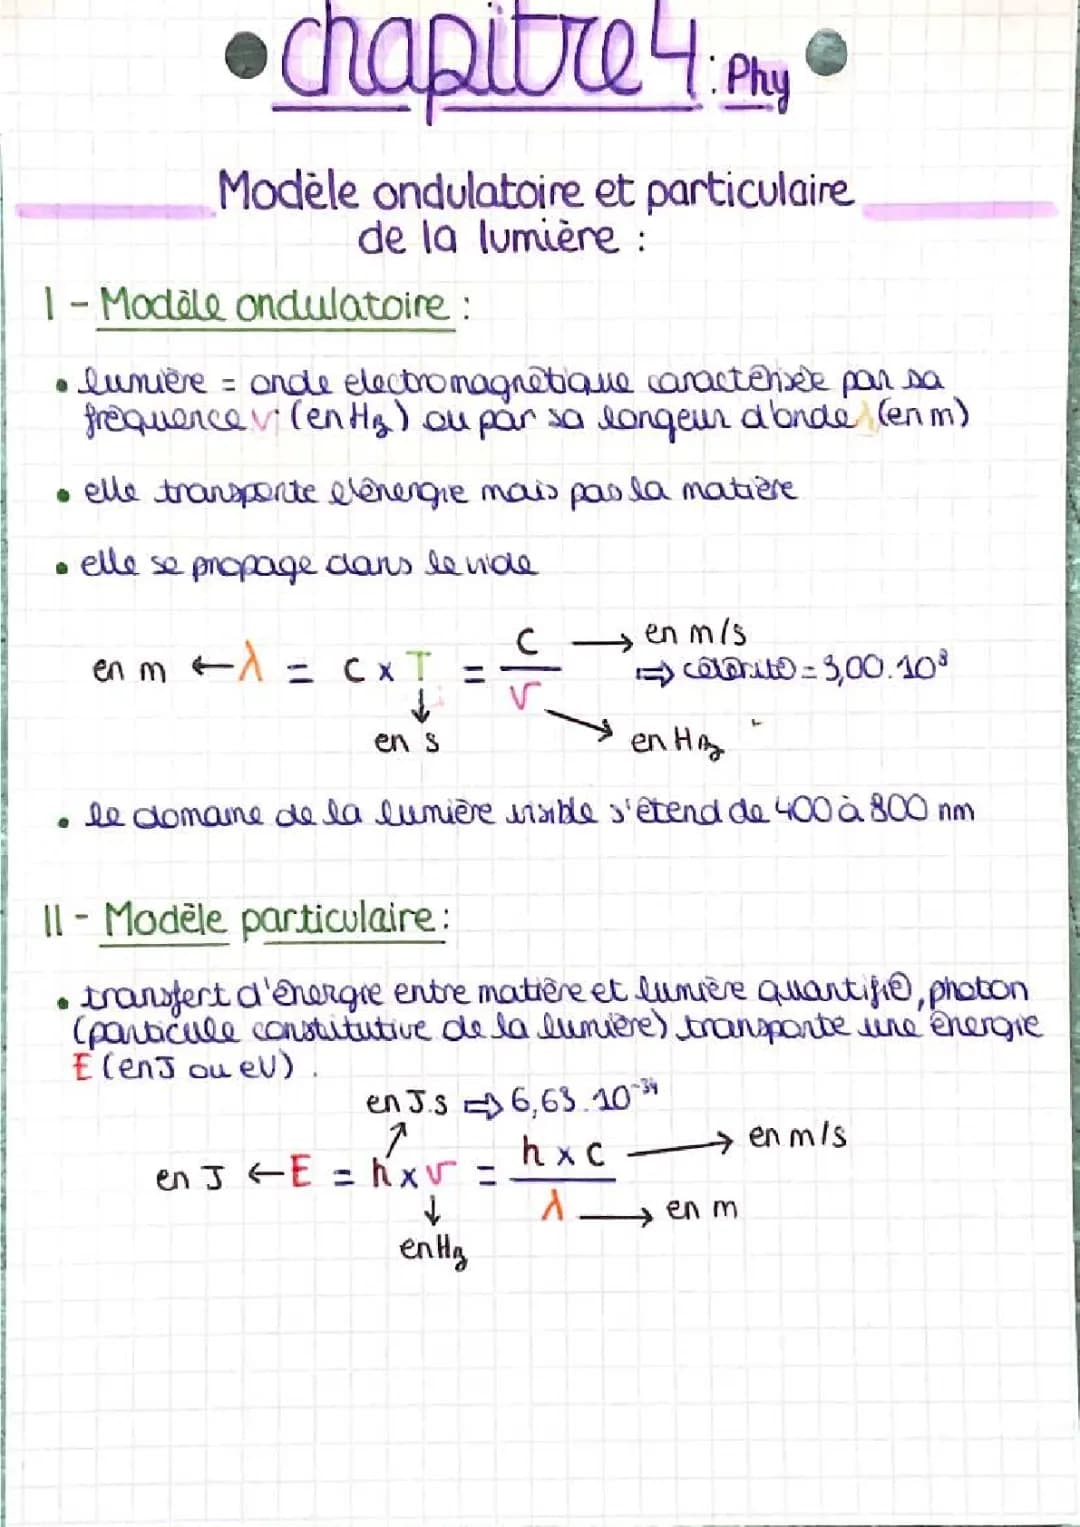 • chapitre 4 : Phy •
Modèle ondulatoire et particulaire
de la lumière :
I - Modèle ondulatoire :
• lumière = onde electromagnétique caractérisée par sa
fréquence ν (en Hz) ou par sa longeur d'onde λ (en m)
• elle transporte l'énergie mais pas la matière
• elle se propage dans le vide
en m ← λ = c x T = c / ν → en m/s
⇒ célérité = 3,00.10⁸
↓ en s
↘ en Hz
• le domaine de la lumière visible s'étend de 400 à 800 nm
II - Modèle particulaire :
• transfert d'énergie entre matière et lumière quantifié, photon
(particule constitutive de la lumière) transporte une énergie
E (en J ou eV).
en J.s ⇒ 6,63.10⁻³⁴
en J ← E = h x ν = h x c / λ → en m/s
→ en m
↓ en Hz